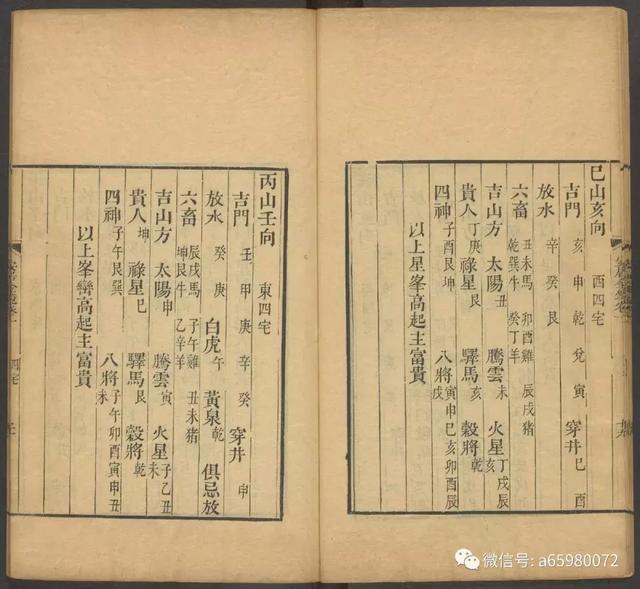 巳山亥向　酉四宅
吉門　亥申乾兌寅　穿井　巳酉
放水　辛癸艮
六畜　丑未馬　卯酉雞　辰戌猪　乾巽牛　癸丁羊
吉山方　太陽　騰雲未　火星丁戌辰亥
貴人丁庚　祿星艮　驛馬亥　穀將
四神子酉艮坤　八將寅申巳亥卯酉辰戌
以上星峯高起主富貴
丙山壬向　東四宅
吉門　壬甲庚辛癸　穿井　申
放水　癸庚　白虎午　黃泉乾　俱忌放
六畜　辰戌馬　子午雞　丑未猪　坤艮牛　乙辛羊
吉山方　太陽申　騰雲寅　火星子乙丑未
貴人坤　祿星巳　驛馬艮　穀將乾
四神子午艮巽　八將子午卯酉寅申丑未
以上峯巒高起主富貴
微信号: a65980072